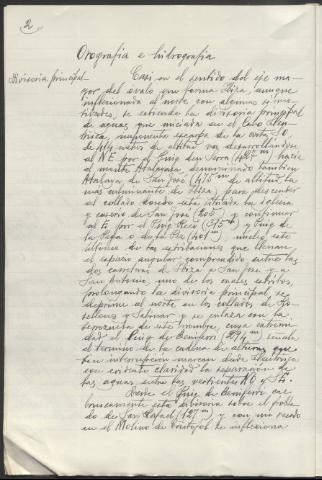 2
Orografia e hidrografia
Divisoria principal.- Casi en el sentido del eje ma-
yor del óvalo que forma Ibiza, aunque
inflexionada al norte con algunas sinuo-
sidades, se extiende la divisoria principal
de aguas que iniciada en el Cabo Llen-
trisca, imponente escarpe de la costa SO.
de 414 metros de altitud va desarrollándose
al NE por el Puig den Serra (405 m) hacia
el monte Atalayasa, denominado también
Atalaya de San José (475 m de altitud la
más culminante de Ibiza) para descender
al collado donde está situada la iglesia
y caserío de San José (205) y continuar
al E por el Puig (315 m) y Puig de
la (401 m) siendo este
último de las estribaciones que llenan
el espacio angular comprendido entre las
dos carreteras de Ibiza a San José y a
San Antonio, uno de los cuales estribos,
prolongando la divisoria principal se
deprime al norte en los collados de
y y se enlaza con la
de este nombre, cuya extremi-
dad el Puig de señala
el término de la cadena de alturas que
sin interrupción marcan desde Llentrisca
con evidente claridad la separación de
las aguas entre las vertientes NO y SE.
Desde el Puig de
bruscamente esta divisoria sobre el pobla-
do de San Rafael (127 m) y con un
en el Molino de inflexiona